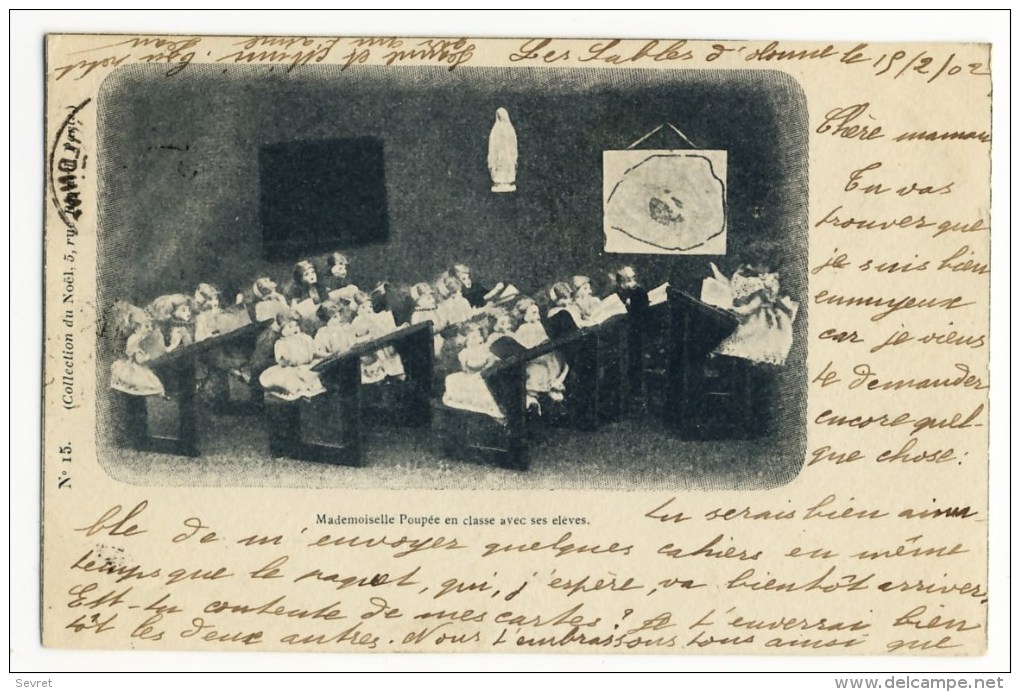 Les Sables d'Olonne le 15/2/02
Chère maman
Tu vas
trouver que
je suis bien
ennuyeux
car je viens
te demander
encore quel-
que chose:
tu serais bien aima-
ble de m'envoyer quelques cahiers en même
temps que le paquet, qui, j'espère, va bientôt arriver.
Est-tu contente de mes cartes? Je t'enverrai bien
tôt les deux autres. Nous t'embrassons tous ainsi que
qui t'aime
Jean
Mademoiselle Poupée en classe avec ses elèves.
N° 15. (Collection du Noël, 5, rue
Sevret
www.delcampe.net